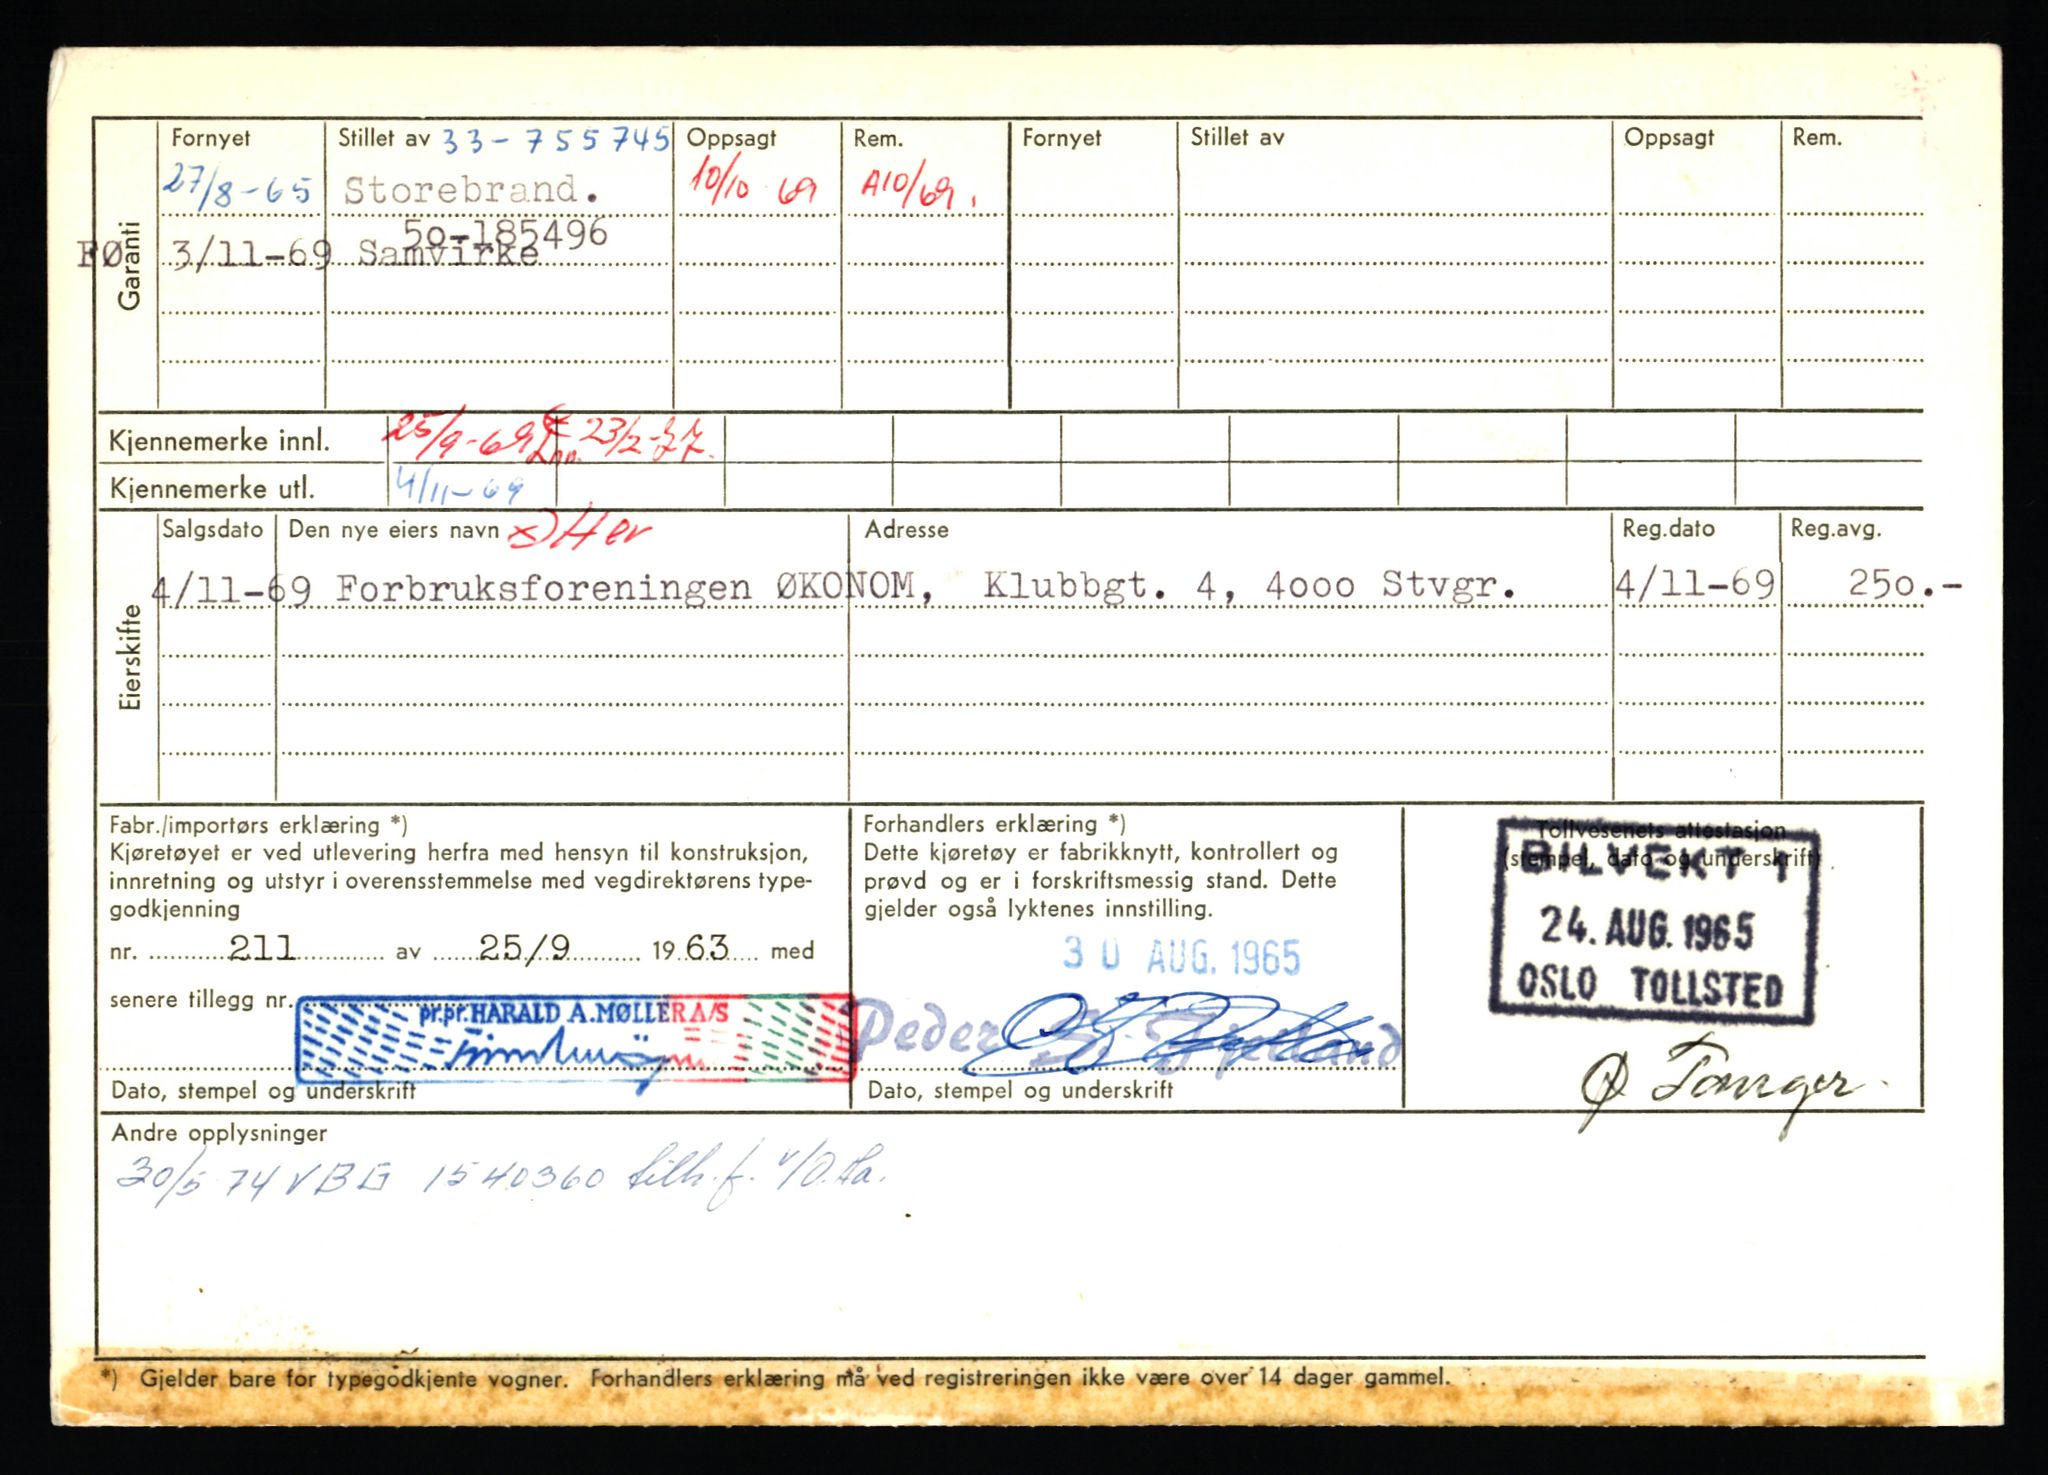 Garanti
Fornyet Stillet av 33-755745 Oppsagt Rem. Fornyet Stillet av Oppsagt Rem.
27/8-65 Storebrand. 10/10 69 A10/69.
50-185496
FØ 3/11-69 Samvirke
Kjennemerke innl. 25/9-69 Inn. 23/2-77.
Kjennemerke utl. 4/11-69
Eierskifte
Salgsdato Den nye eiers navn Adresse Reg.dato Reg.avg.
4/11-69 Forbruksforeningen ØKONOM, Klubbgt. 4, 4000 Stvgr. 4/11-69 250.-
Fabr./importørs erklæring *)
Kjøretøyet er ved utlevering herfra med hensyn til konstruksjon,
innretning og utstyr i overensstemmelse med vegdirektørens type-
godkjenning
nr. 211 av 25/9 1963 med
senere tillegg nr.
pr.pr. HARALD A. MØLLER A/S
Dato, stempel og underskrift
Forhandlers erklæring *)
Dette kjøretøy er fabrikknytt, kontrollert og
prøvd og er i forskriftsmessig stand. Dette
gjelder også lyktenes innstilling.
30 AUG. 1965
Peder
Dato, stempel og underskrift
Tollvesenets attestasjon
(stempel, dato og underskrift)
BILVEKT 1
24. AUG. 1965
OSLO TOLLSTED
Ø Tanger.
Andre opplysninger
30/5 74 VBG 1540360 tilh.f.
*) Gjelder bare for typegodkjente vogner. Forhandlers erklæring må ved registreringen ikke være over 14 dager gammel.